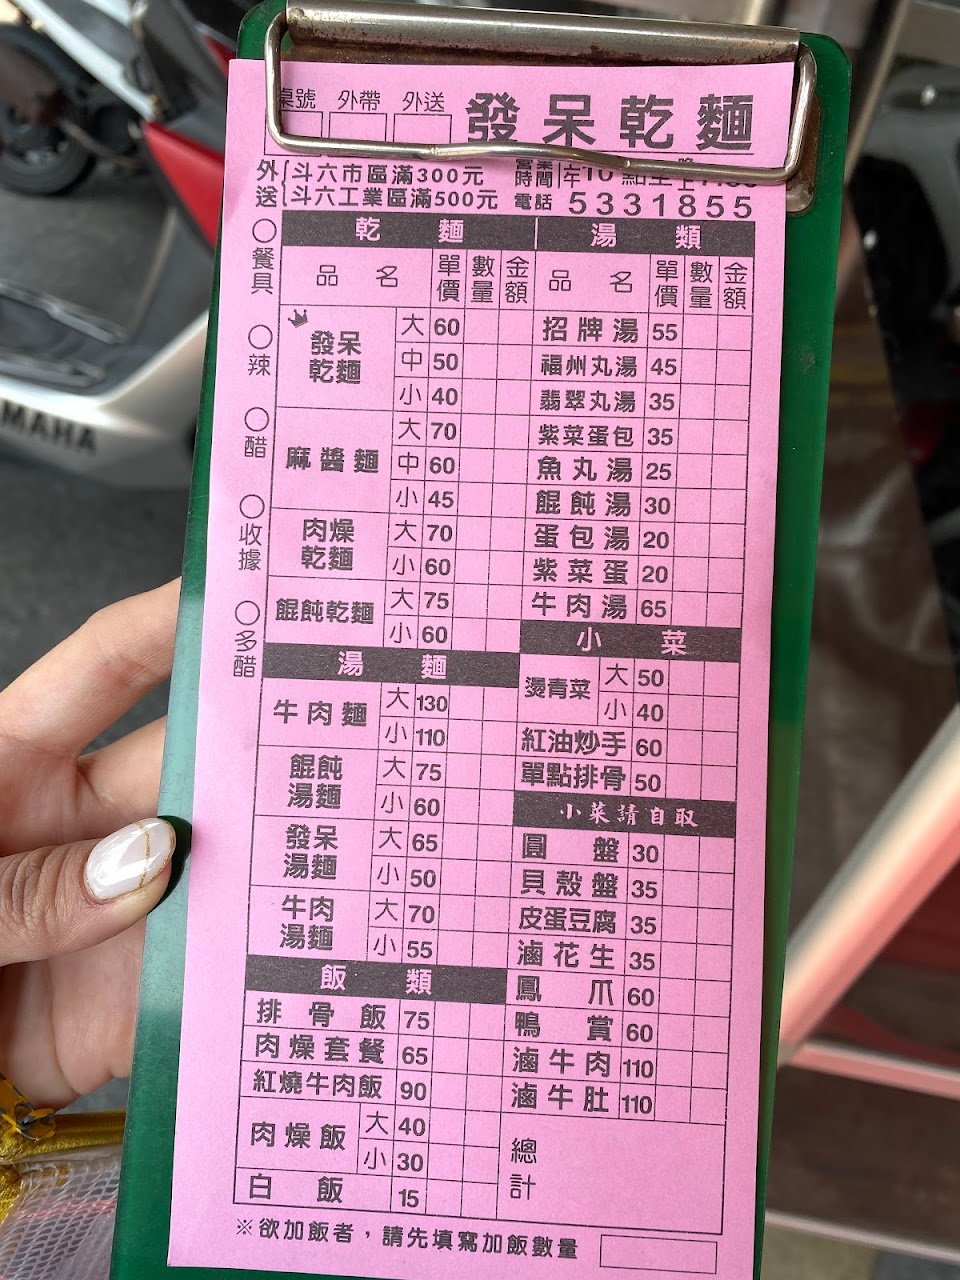 桌號 外帶 外送
發呆乾麵
外送 斗六市區滿300元
斗六工業區滿500元
營業時間 上午10點至晚上
電話 5331855
○餐具
○辣
○醋
○收據
○多醋
乾麵
品名 單價 數量 金額
發呆乾麵 大 60
中 50
小 40
麻醬麵 大 70
中 60
小 45
肉燥乾麵 大 70
小 60
餛飩乾麵 大 75
小 60
湯麵
牛肉麵 大 130
小 110
餛飩湯麵 大 75
小 60
發呆湯麵 大 65
小 50
牛肉湯麵 大 70
小 55
飯類
排骨飯 75
肉燥套餐 65
紅燒牛肉飯 90
肉燥飯 大 40
小 30
白飯 15
湯類
品名 單價 數量 金額
招牌湯 55
福州丸湯 45
翡翠丸湯 35
紫菜蛋包 35
魚丸湯 25
餛飩湯 30
蛋包湯 20
紫菜蛋 20
牛肉湯 65
小菜
燙青菜 大 50
小 40
紅油炒手 60
單點排骨 50
小菜請自取
圓盤 30
貝殼盤 35
皮蛋豆腐 35
滷花生 35
鳳爪 60
鴨賞 60
滷牛肉 110
滷牛肚 110
總計
※欲加飯者，請先填寫加飯數量
YAMAHA